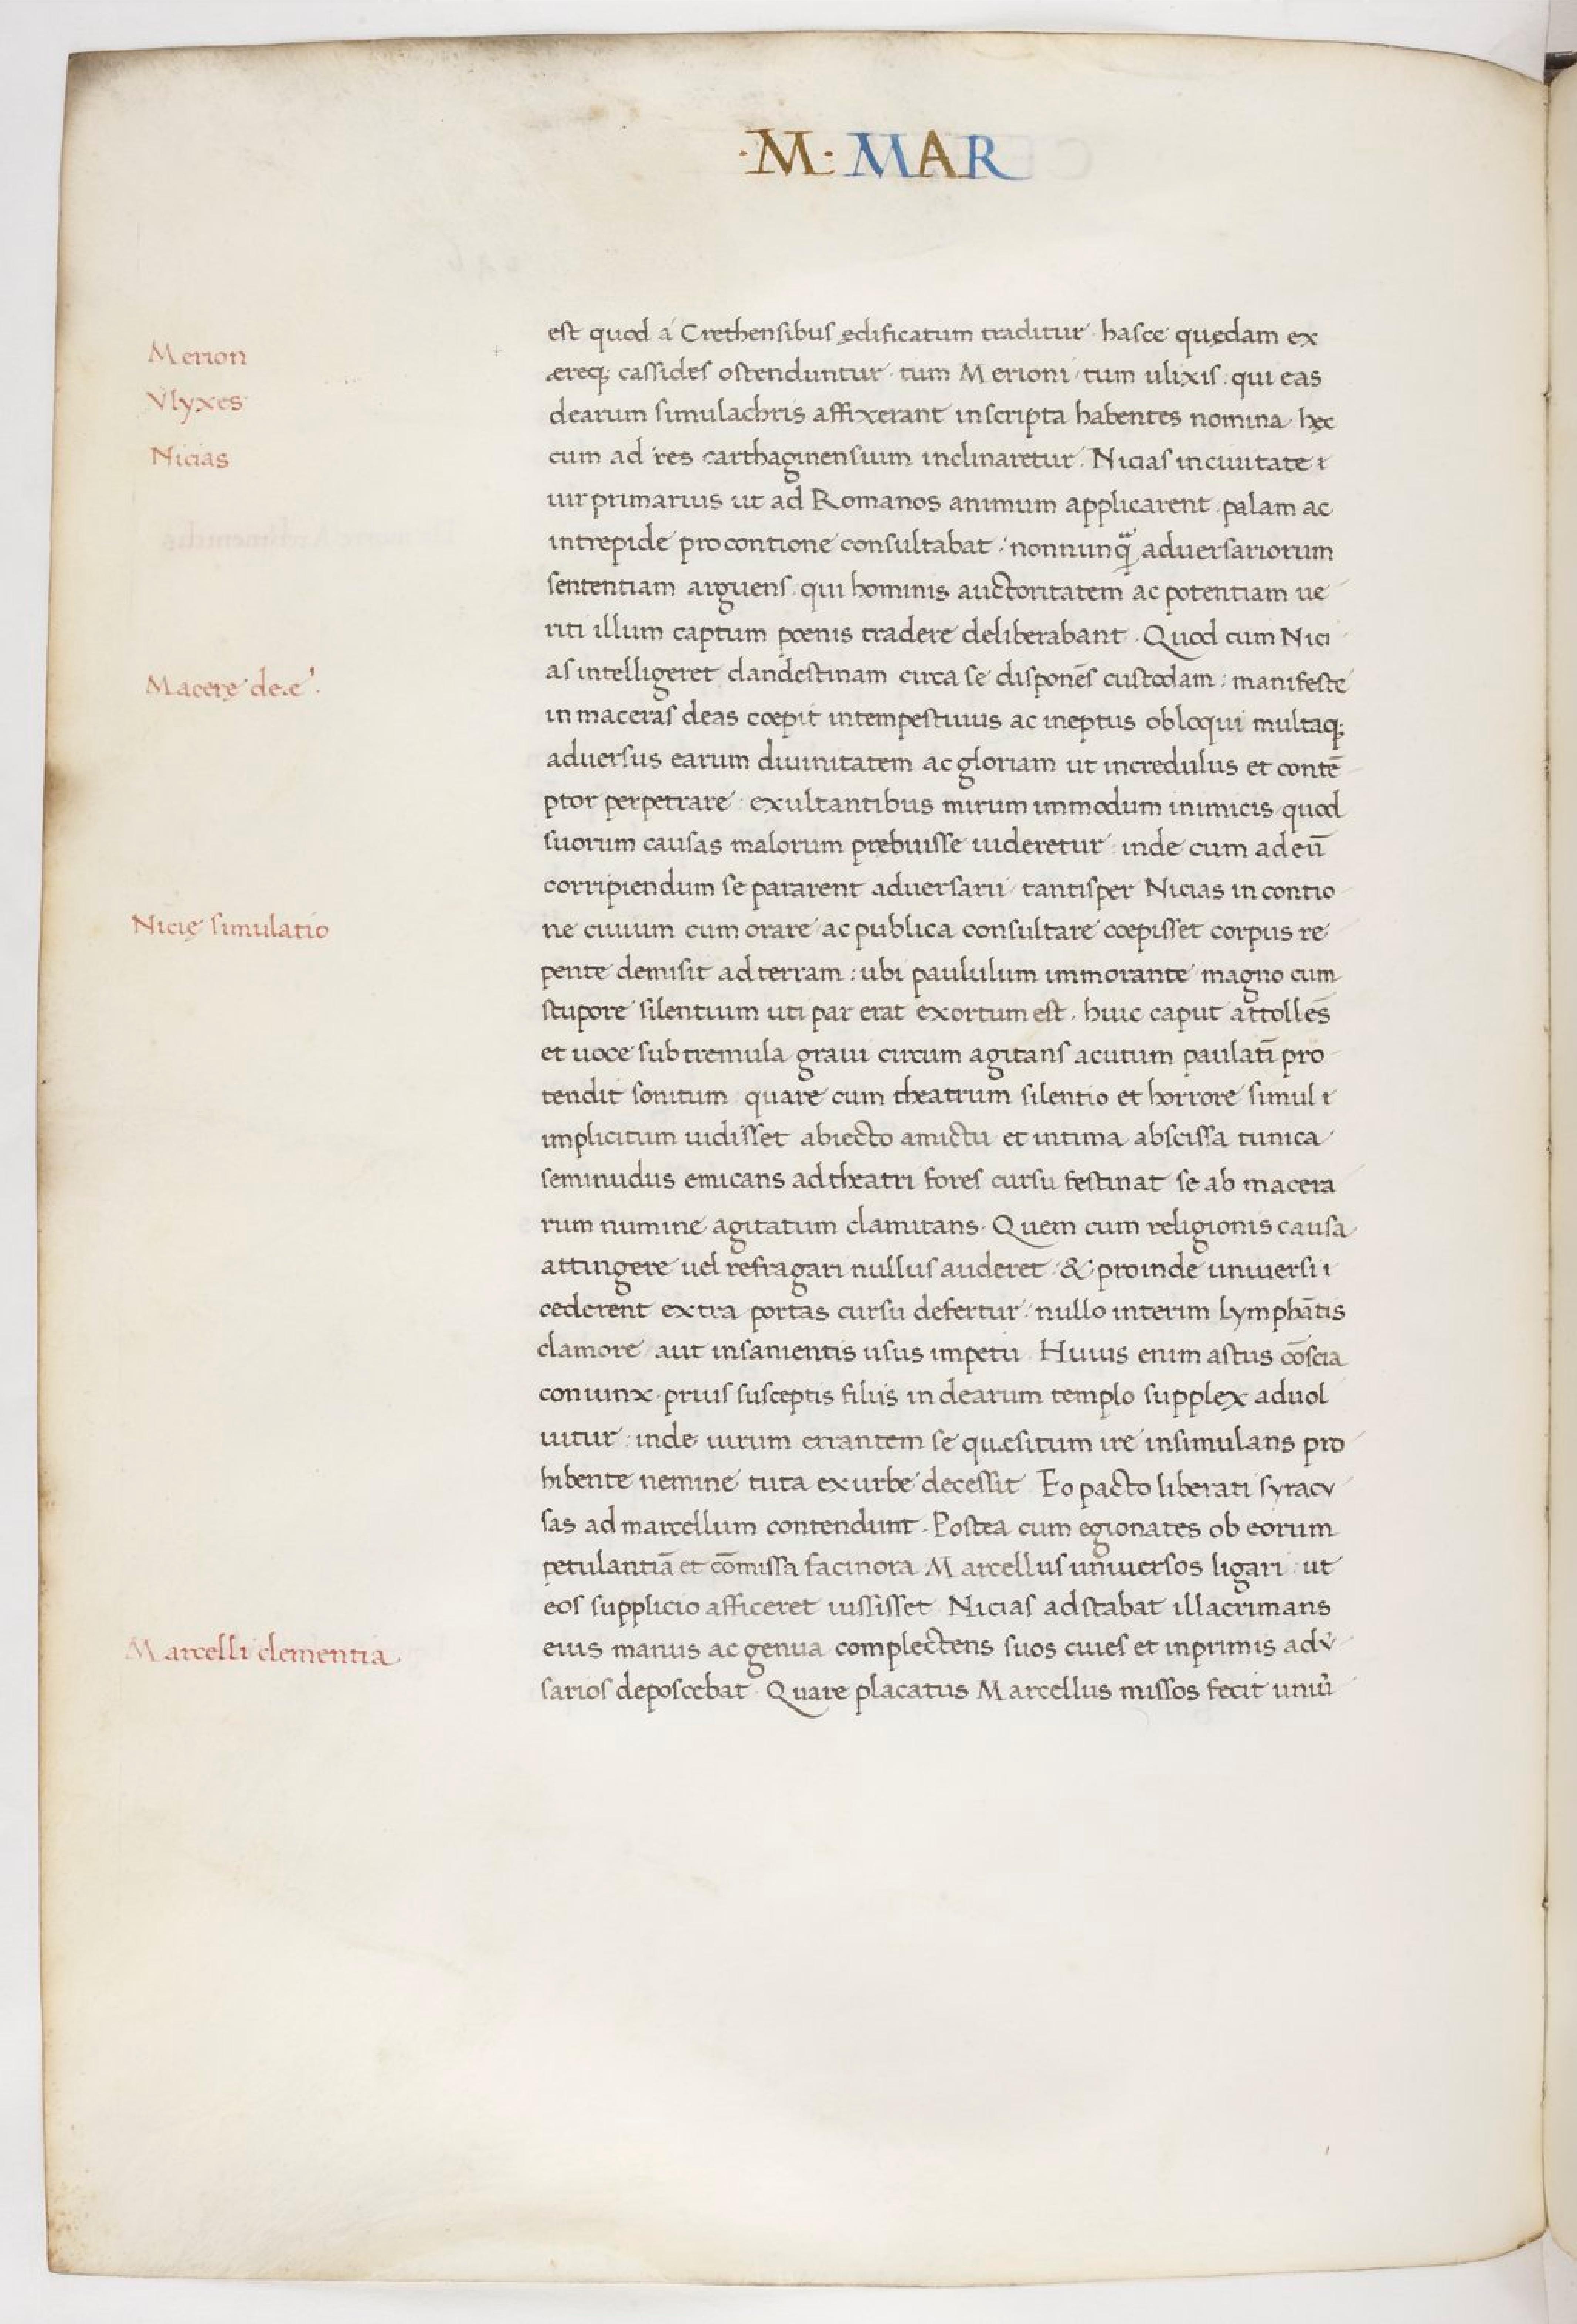 ·M· MAR
Merion
Vlyxes
Nicias
Macerę de.e'.
Nicię simulatio
Marcelli clementia.
est quod a Crethensibus ędificatum traditur · hasce quędam ex
ereq; cassides ostenduntur · tum Merioni · tum ulixis · qui eas
dearum simulachris affixerant inscripta habentes nomina · hęc
cum ad res carthaginensium inclinaretur · Nicias in ciuitate ı
uir primarius ut ad Romanos animum applicarent · palam ac
intrepide pro contione consultabat : nonnunq̃ aduersariorum
sententiam arguens · qui hominis auctoritatem ac potentiam ue
riti illum captum pœnis tradere deliberabant · Quod cum Nici
as intelligeret clandestinam circa se disponẽs custodam : manifeste
in maceras deas cœpit intempestiuius ac ineptus obloqui multaq;
aduersus earum diuinitatem ac gloriam ut incredulus et contẽ
ptor perpetrare · exultantibus mirum immodum inimicis quod
suorum causas malorum prębuisse uideretur · inde cum ad eũ
corripiendum se pararent aduersarii · tantisper Nicias in contio
ne ciuium cum orare ac publica consultare cœpisset corpus re
pente demisit ad terram : ubi paululum immorante magno cum
stupore silentium uti par erat exortum est · huic caput attollẽs
et uoce subtremula graui circum agitans acutum paulatĩ pro
tendit sonitum · quare cum theatrum silentio et horrore simul ı
implicitum uidisset abiecto amictu et intima abscissa tunica
seminudus emicans ad theatri fores cursu festinat se ab macera
rum numine agitatum clamitans · Quem cum religionis causa
attingere uel refragari nullus auderet · & proinde uniuersi ı
cederent extra portas cursu defertur : nullo interim lymphãtis
clamore aut insanientis usus impetu · Huius enim astus cõscia
coniunx · prius susceptis filiis in dearum templo supplex aduol
uitur : inde uirum errantem se quæsitum ire insimulans pro
hibente nemine tuta ex urbe decessit · Eo pacto liberati syracu
sas ad marcellum contendunt · Postea cum egionates ob eorum
petulantiã et cõmissa facinora Marcellus uniuersos ligari · ut
eos supplicio afficeret iussisset · Nicias adstabat illacrimans
eius manus ac genua complectens suos ciues et inprimis adv̉
sarios deposcebat · Quare placatus Marcellus missos fecit uniu̓